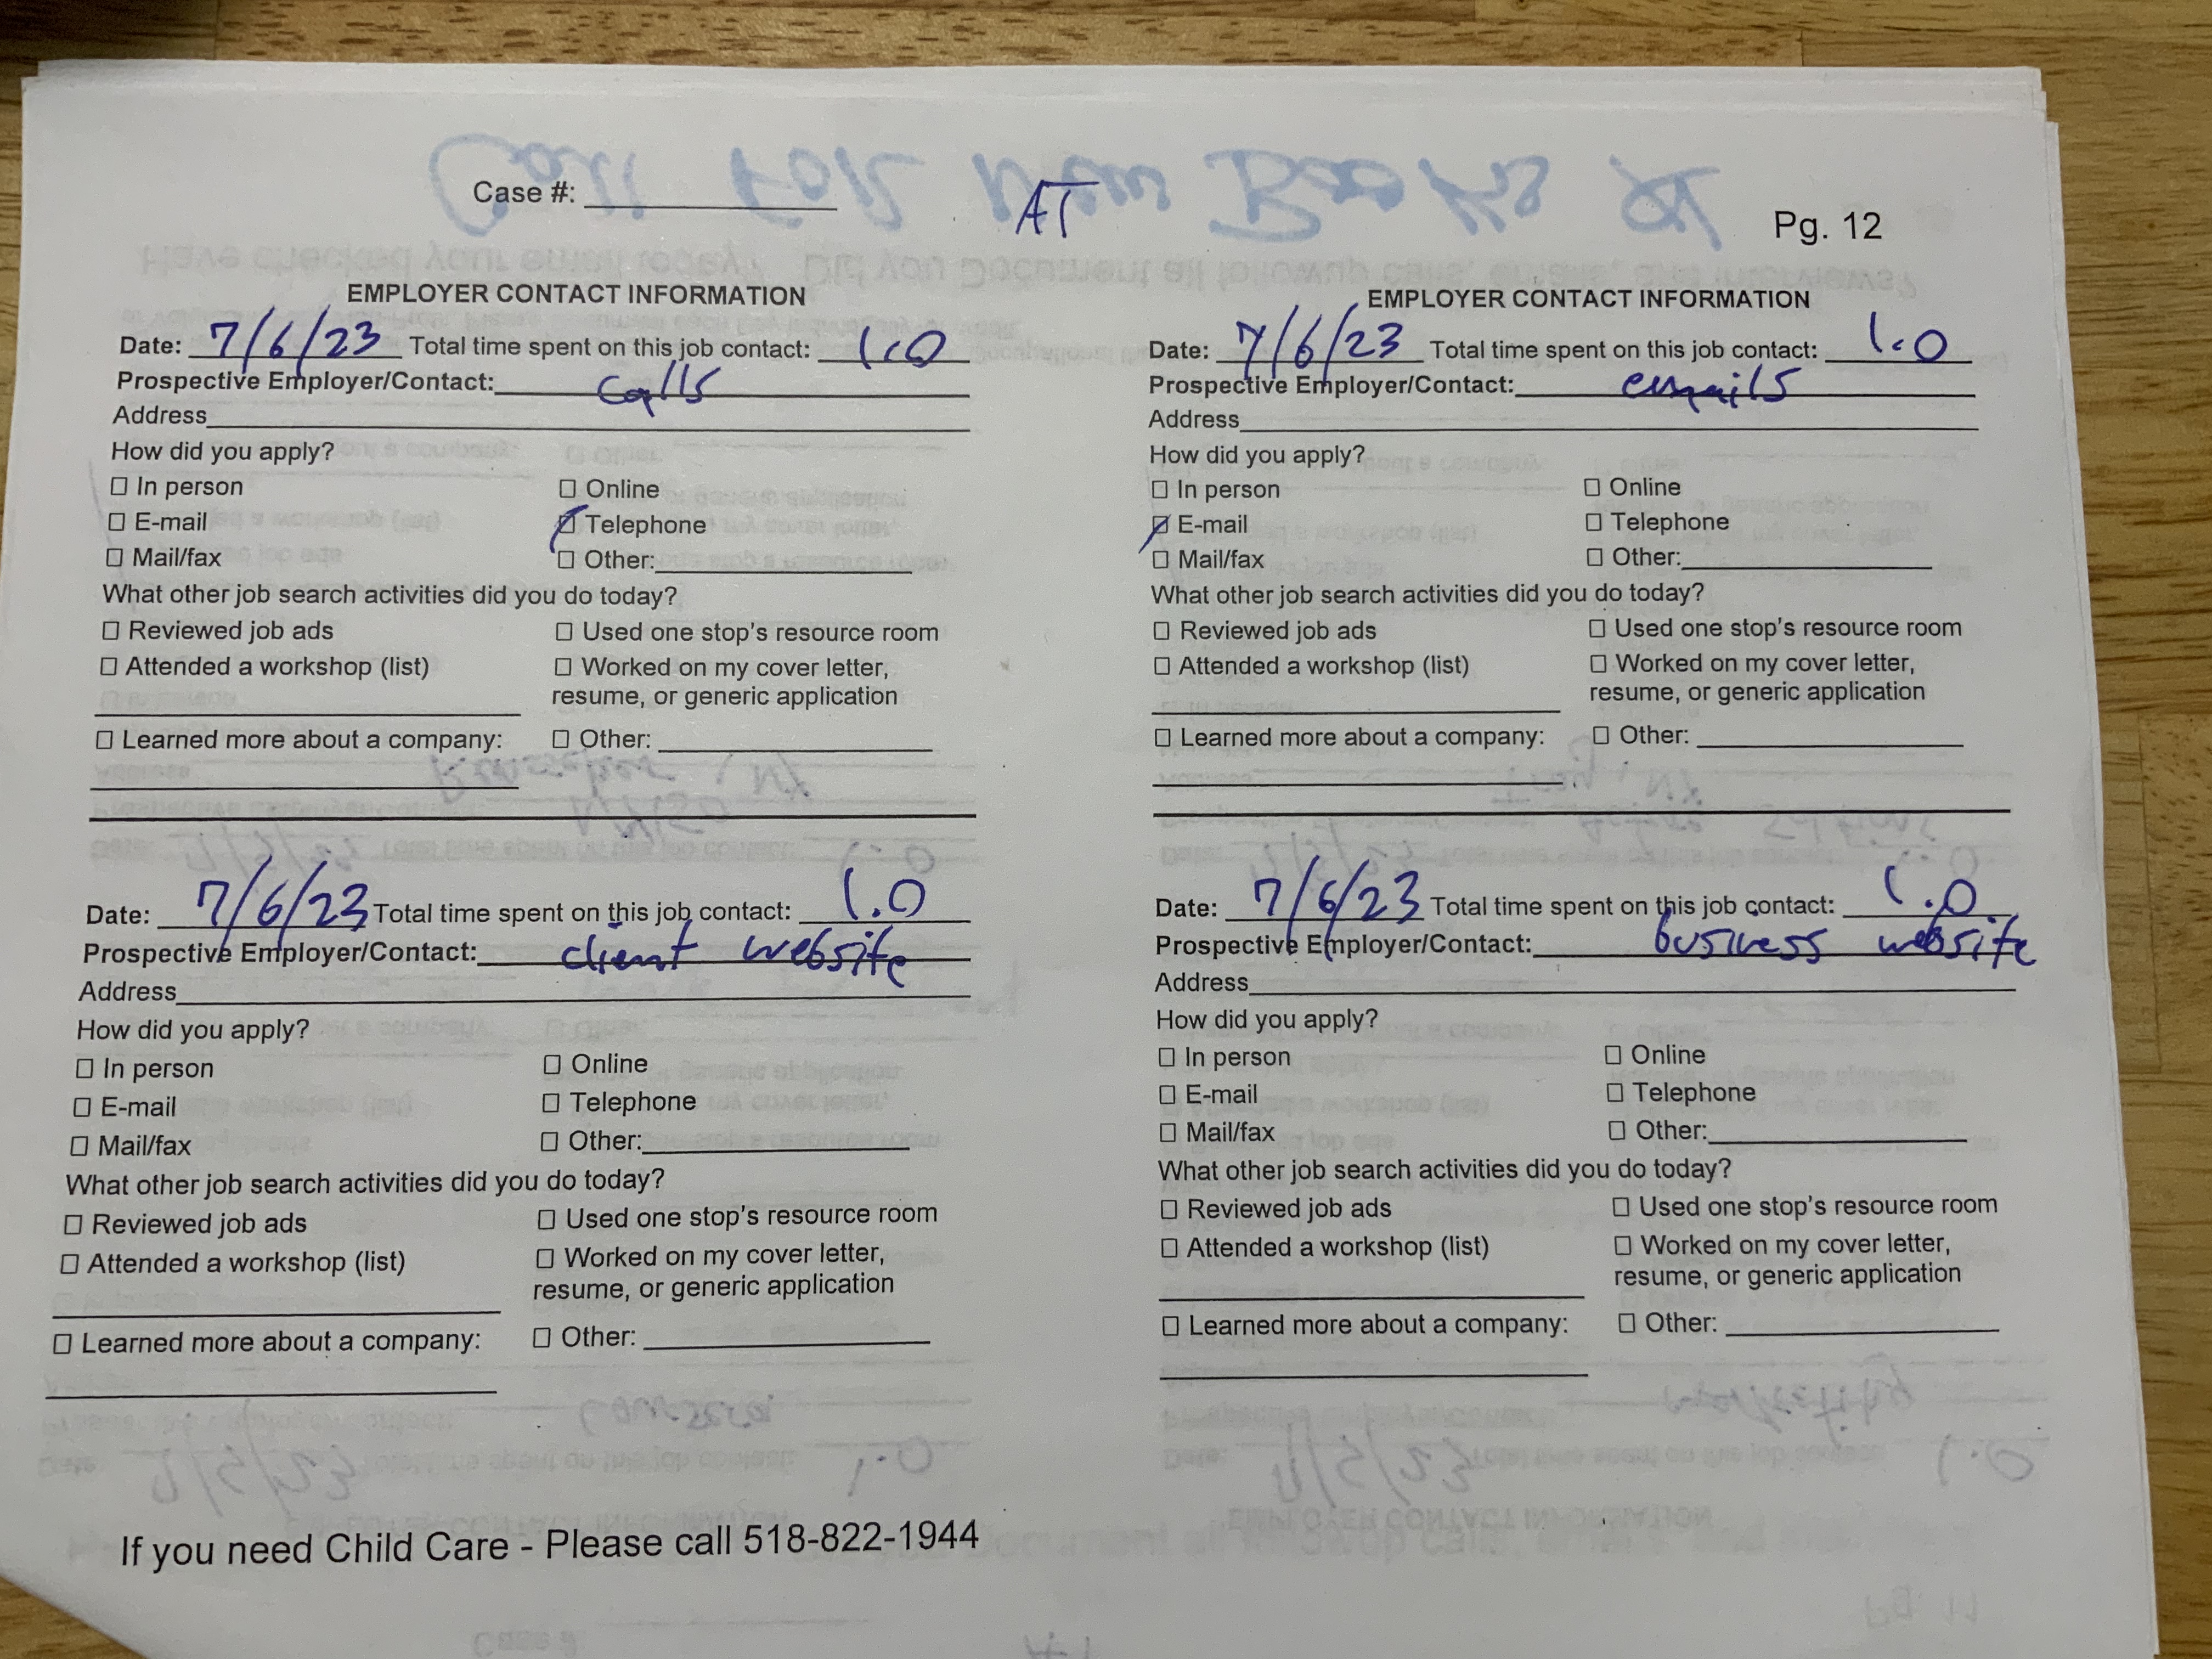 Call FOR New Books at
Case #: ____ AT Pg. 12
Have checked your email today? Did you Document all followup calls, emails, and interviews?
EMPLOYER CONTACT INFORMATION
Date: 7/6/23 Total time spent on this job contact: 1.0
Prospective Employer/Contact: calls
Address
How did you apply?
☐ In person ☐ Online
☐ E-mail ☑ Telephone
☐ Mail/fax ☐ Other:
What other job search activities did you do today?
☐ Reviewed job ads ☐ Used one stop's resource room
☐ Attended a workshop (list) ☐ Worked on my cover letter,
resume, or generic application
☐ Learned more about a company: ☐ Other:
EMPLOYER CONTACT INFORMATION
Date: 7/6/23 Total time spent on this job contact: 1.0
Prospective Employer/Contact: emails
Address
How did you apply?
☐ In person ☐ Online
☑ E-mail ☐ Telephone
☐ Mail/fax ☐ Other:
What other job search activities did you do today?
☐ Reviewed job ads ☐ Used one stop's resource room
☐ Attended a workshop (list) ☐ Worked on my cover letter,
resume, or generic application
☐ Learned more about a company: ☐ Other:
Date: 7/6/23 Total time spent on this job contact: 1.0
Prospective Employer/Contact: client website
Address
How did you apply?
☐ In person ☐ Online
☐ E-mail ☐ Telephone
☐ Mail/fax ☐ Other:
What other job search activities did you do today?
☐ Reviewed job ads ☐ Used one stop's resource room
☐ Attended a workshop (list) ☐ Worked on my cover letter,
resume, or generic application
☐ Learned more about a company: ☐ Other:
Date: 7/6/23 Total time spent on this job contact: 1.0
Prospective Employer/Contact: business website
Address
How did you apply?
☐ In person ☐ Online
☐ E-mail ☐ Telephone
☐ Mail/fax ☐ Other:
What other job search activities did you do today?
☐ Reviewed job ads ☐ Used one stop's resource room
☐ Attended a workshop (list) ☐ Worked on my cover letter,
resume, or generic application
☐ Learned more about a company: ☐ Other:
If you need Child Care - Please call 518-822-1944